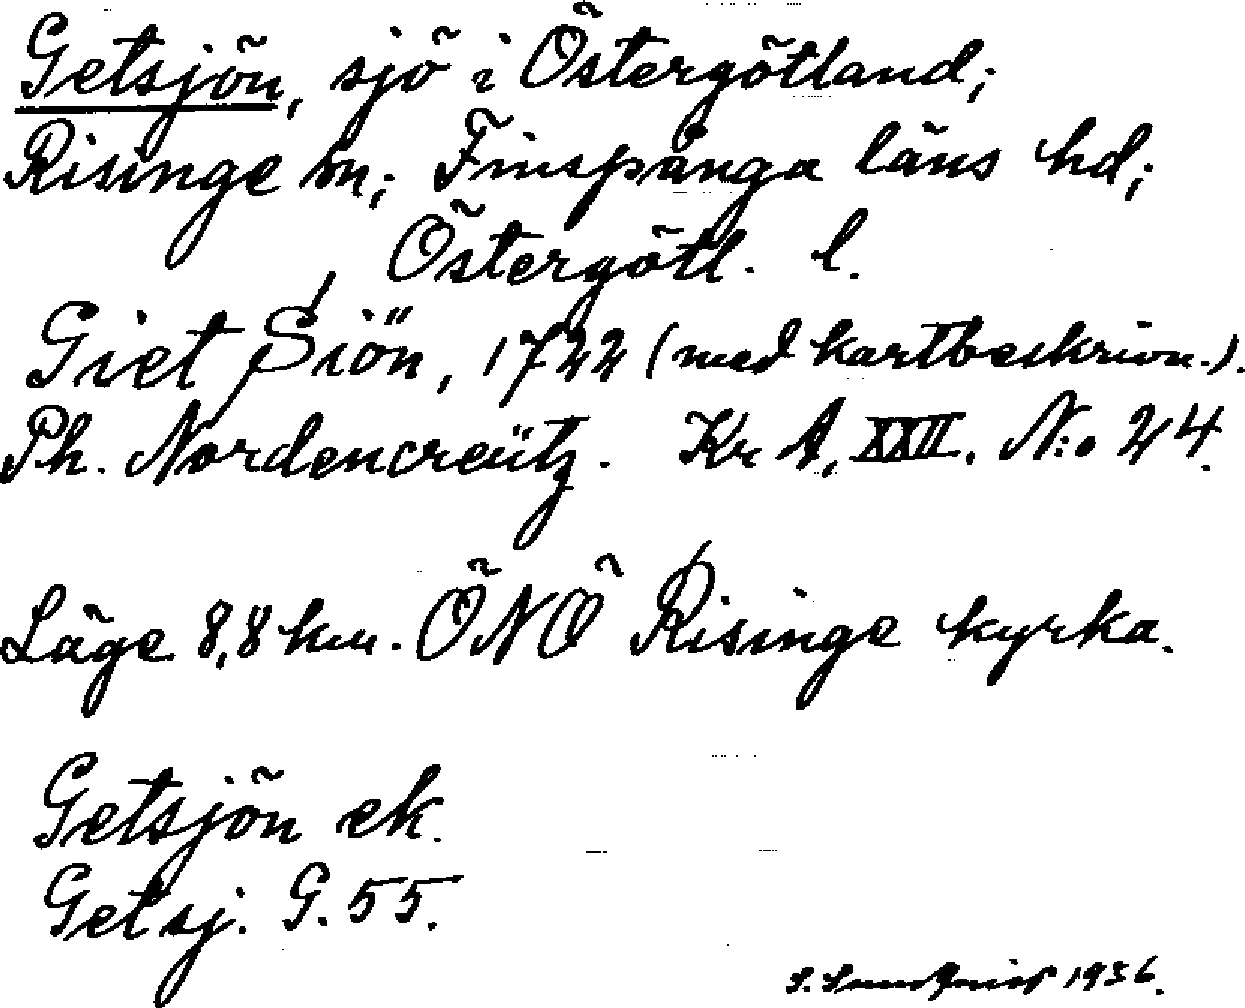 Getsjön, sjö i Östergötland;
Risinge sn; Finspånga läns hd;
Östergötl. l.
Giet Siön, 1722 (med kartbeskrivn.).
Ph. Nordencreütz. Kr A, XXII. N:o 24.
Läge 8,8 km. ÖNÖ Risinge kyrka.
Getsjön ek.
Getsj. G. 55.
S. 1936.